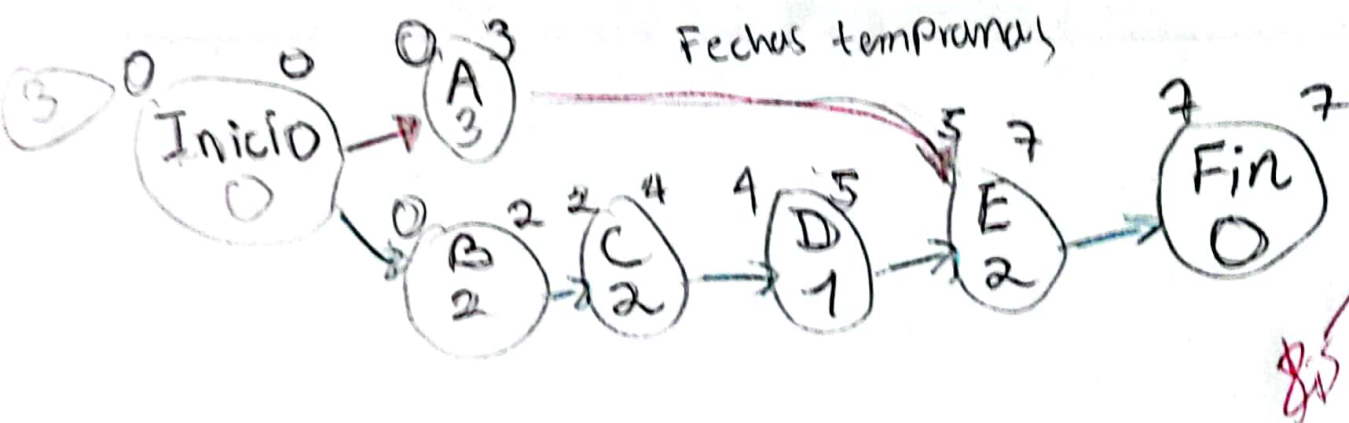 Fechas tempranas
3
0 0
Inicio
0
0 3
A
3
0 2
B
2
2 4
C
2
4 5
D
1
5 7
E
2
7 7
Fin
0